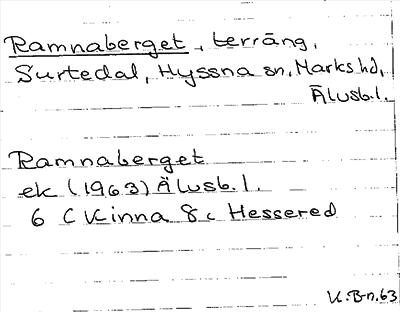 Ramnaberget, terräng,
Surtedal, Hyssna sn, Marks hd,
Älvsb.l.
Ramnaberget
ek (1963) Älvsb.l.
6 C Kinna 8c Hessered
K.B-n.63